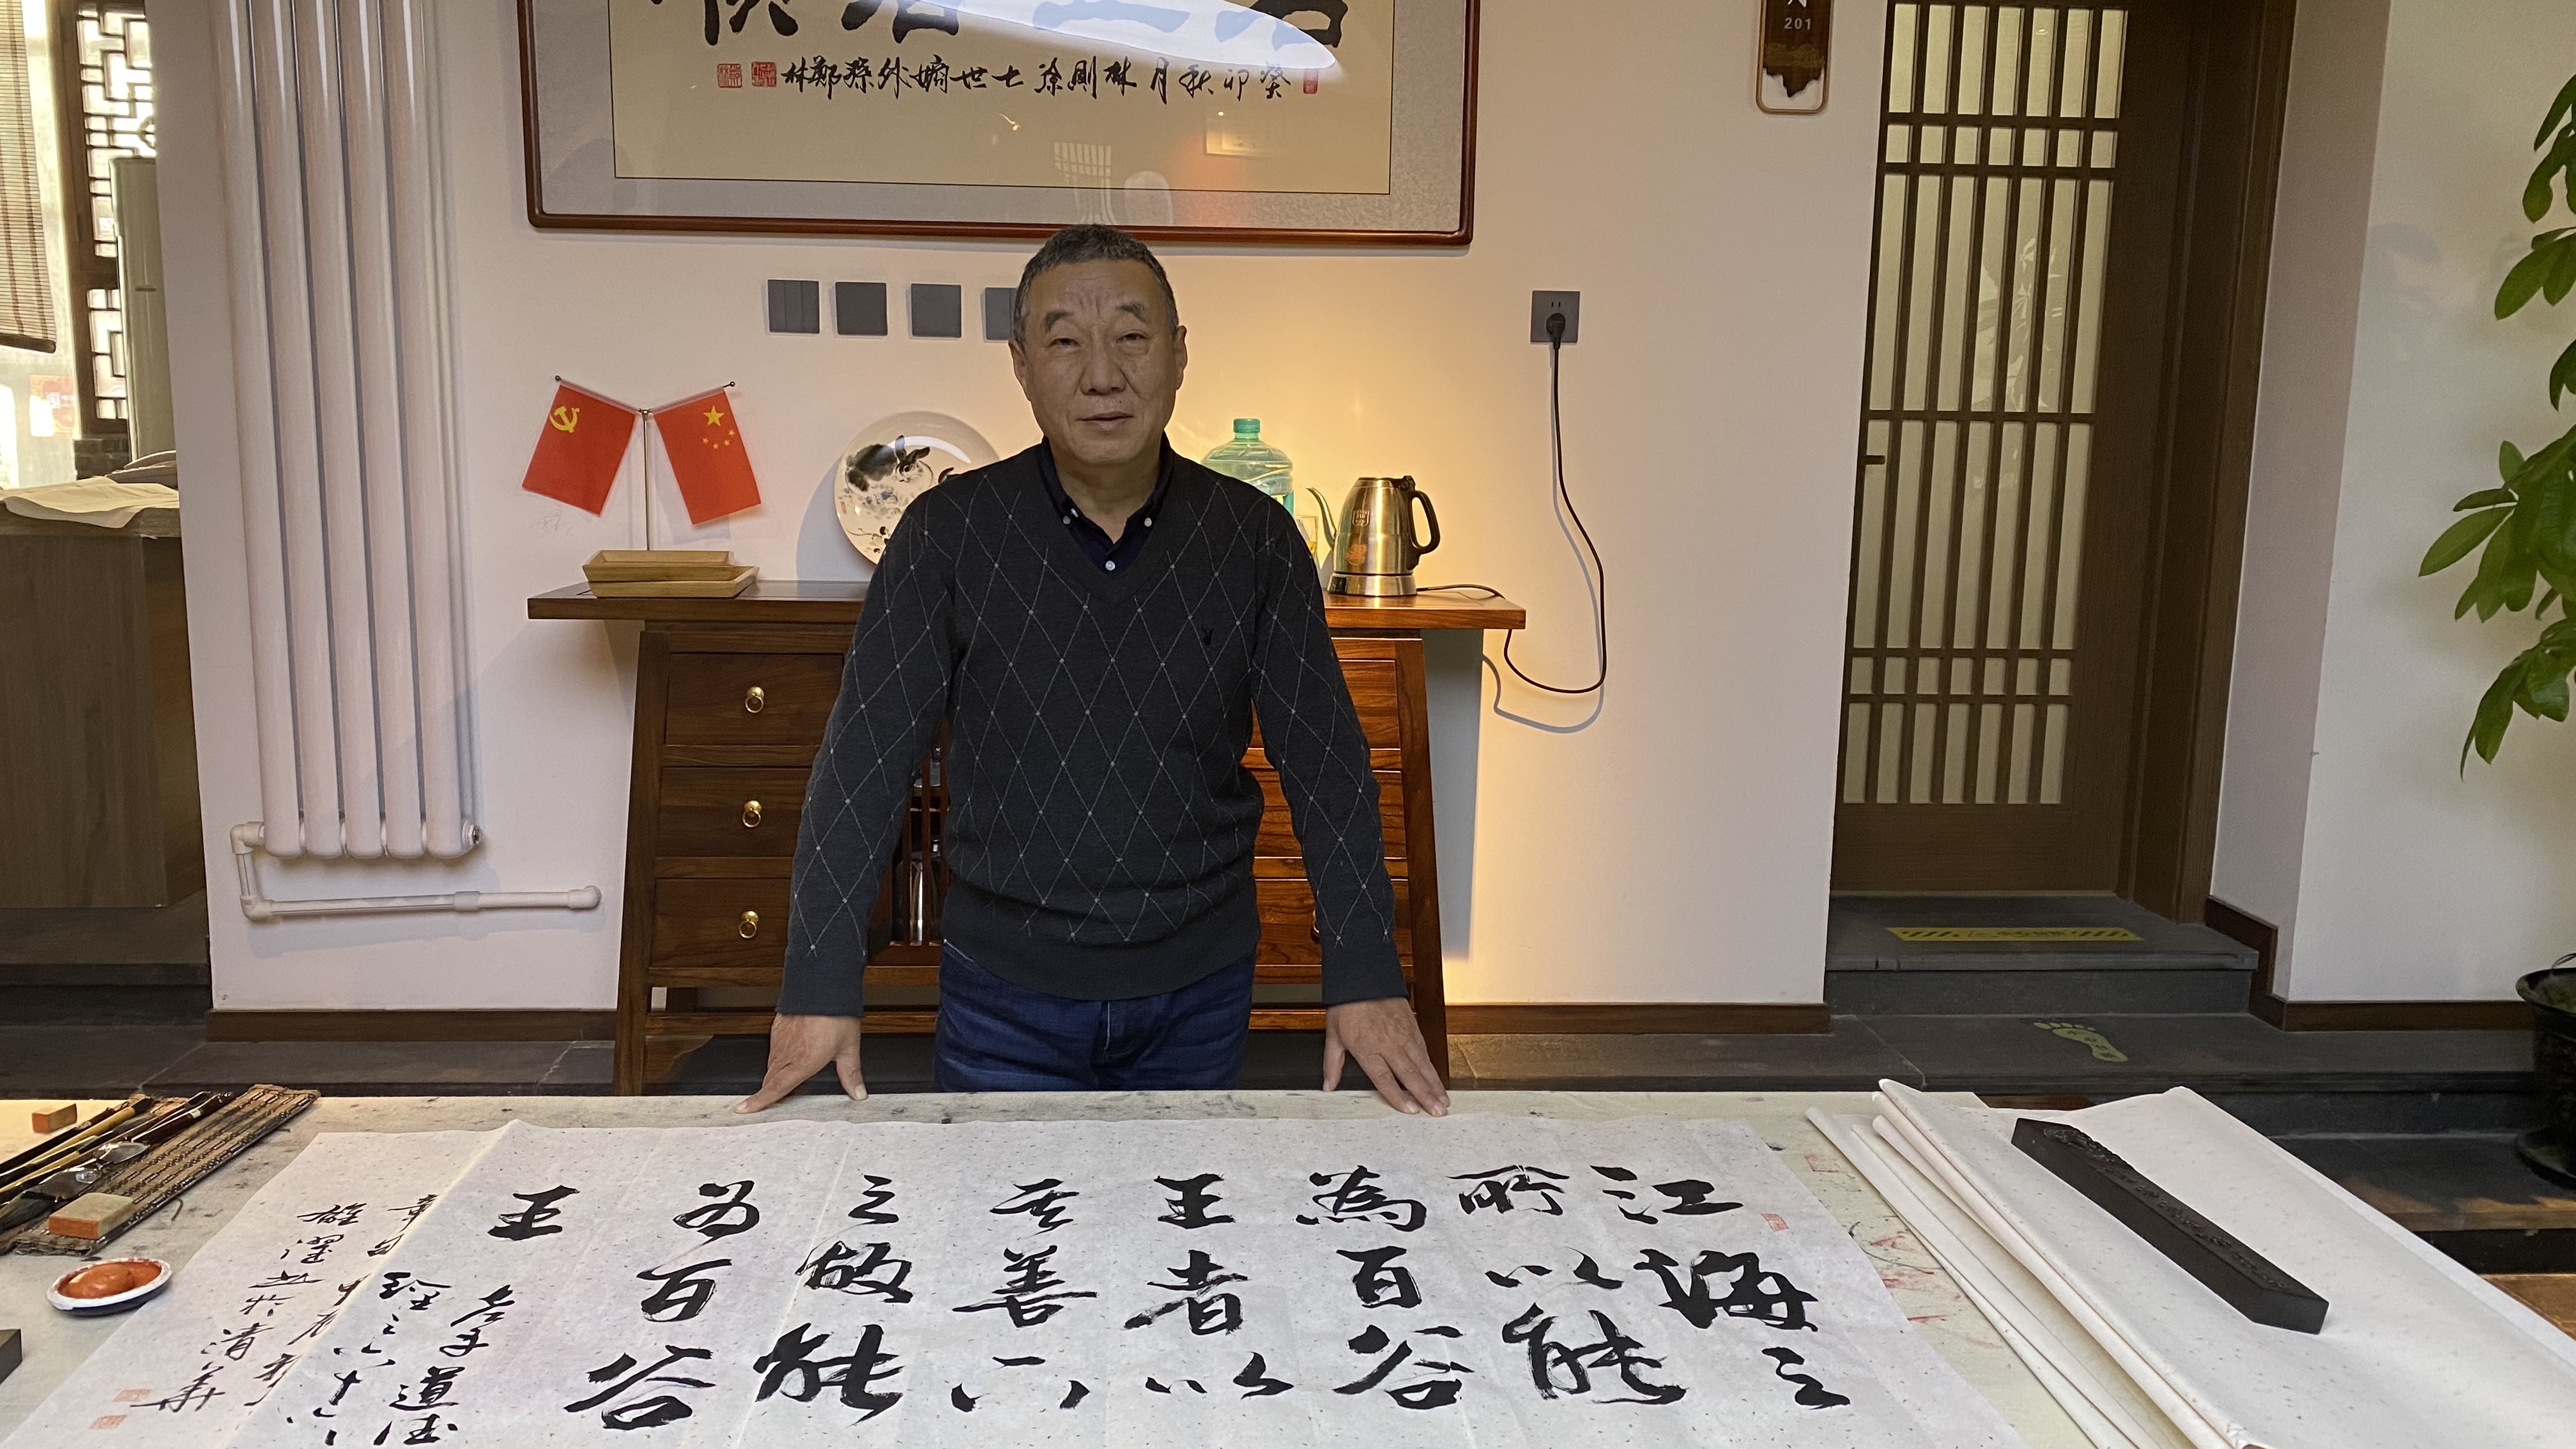 癸卯秋月林則徐七世嫡外孫鄭林
201
江海之
所以能
為百谷
王者以
其善下
之故能
为百谷
王
老子道德
經之六十六
章句
於清華